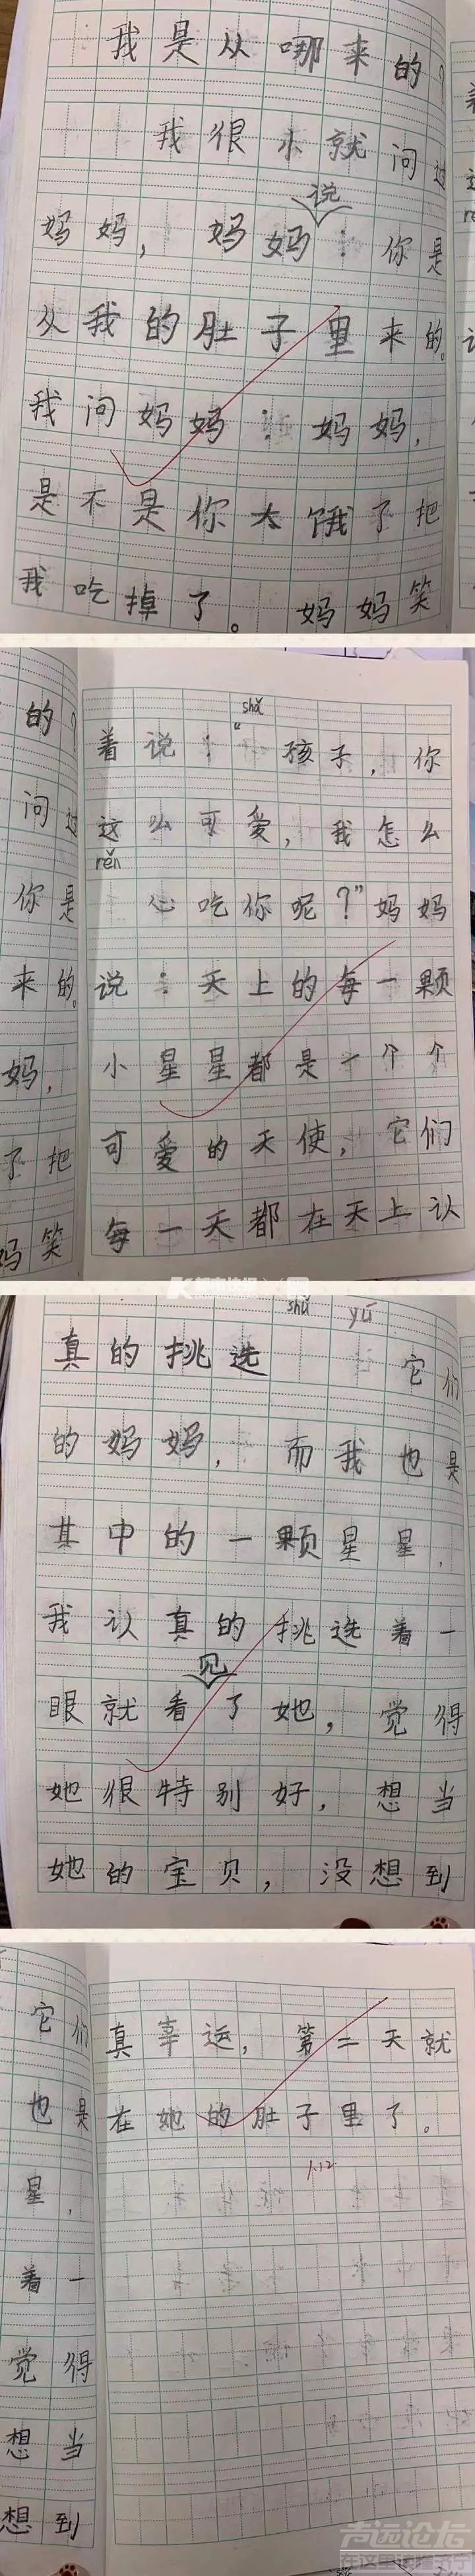 我是从哪来的?
我很小就问过
妈妈,妈妈说:你是
从我的肚子里来的。
我问妈妈:妈妈,
是不是你太饿了把
我吃掉了。妈妈笑
着说:“shǎ孩子,你
这么可爱,我怎么
rěn心吃你呢?”妈妈
说:天上的每一颗
小星星都是一个个
可爱的天使,它们
每一天都在天上认
真的挑选shǔ yú它们
的妈妈,而我也是
其中的一颗星星,
我认真的挑选着一
眼就看见了她,觉得
她很特别好,想当
她的宝贝,没想到
真辛运,第二天就
在她的肚子里了。
1.12